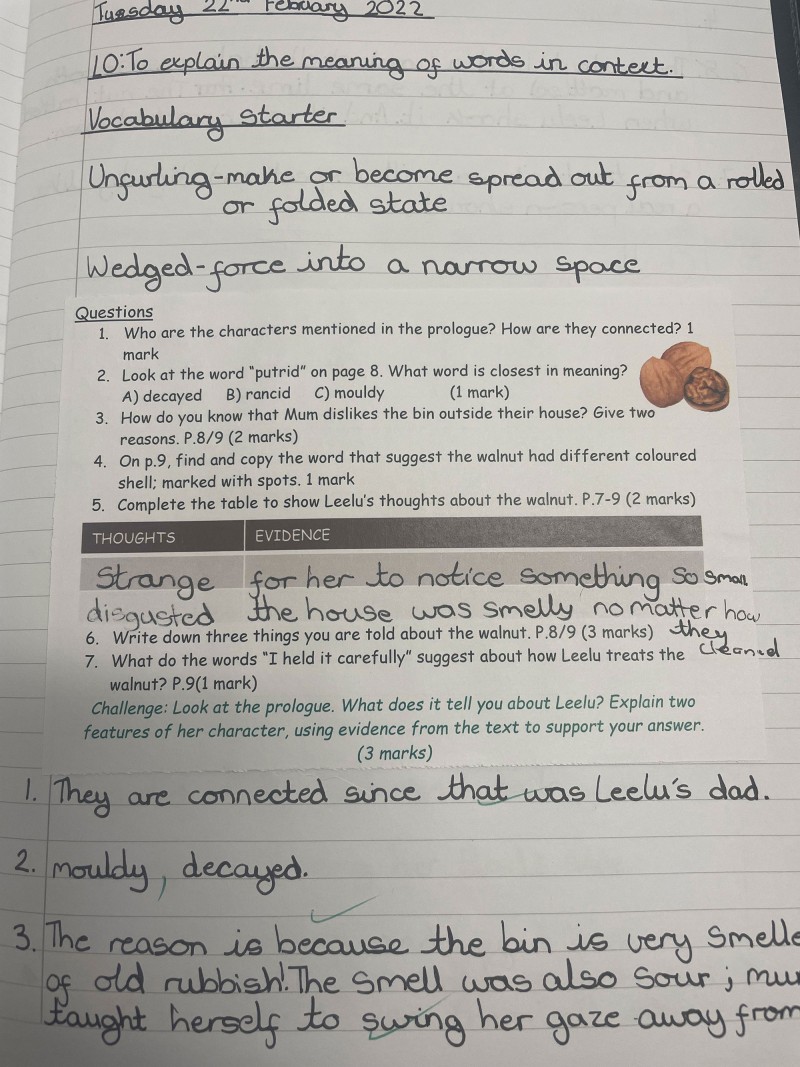 Tuesday 22nd Febuary 2022
LO:To explain the meaning of words in context.
Vocabulary starter
Unfurling-make or become spread out from a rolled
or folded state
Wedged-force into a narrow space
Questions
1. Who are the characters mentioned in the prologue? How are they connected? 1
mark
2. Look at the word "putrid" on page 8. What word is closest in meaning?
A) decayed B) rancid C) mouldy (1 mark)
3. How do you know that Mum dislikes the bin outside their house? Give two
reasons. P.8/9 (2 marks)
4. On p.9, find and copy the word that suggest the walnut had different coloured
shell; marked with spots. 1 mark
5. Complete the table to show Leelu's thoughts about the walnut. P.7-9 (2 marks)
THOUGHTS EVIDENCE
Strange for her to notice something so small
disgusted the house was smelly no matter how
they
cleaned
6. Write down three things you are told about the walnut. P.8/9 (3 marks)
7. What do the words "I held it carefully" suggest about how Leelu treats the
walnut? P.9(1 mark)
Challenge: Look at the prologue. What does it tell you about Leelu? Explain two
features of her character, using evidence from the text to support your answer.
(3 marks)
1. They are connected since that was Leelu's dad.
2. mouldy, decayed.
3. The reason is because the bin is very smelle
of old rubbish!.The smell was also sour; mu
taught herself to swing her gaze away from